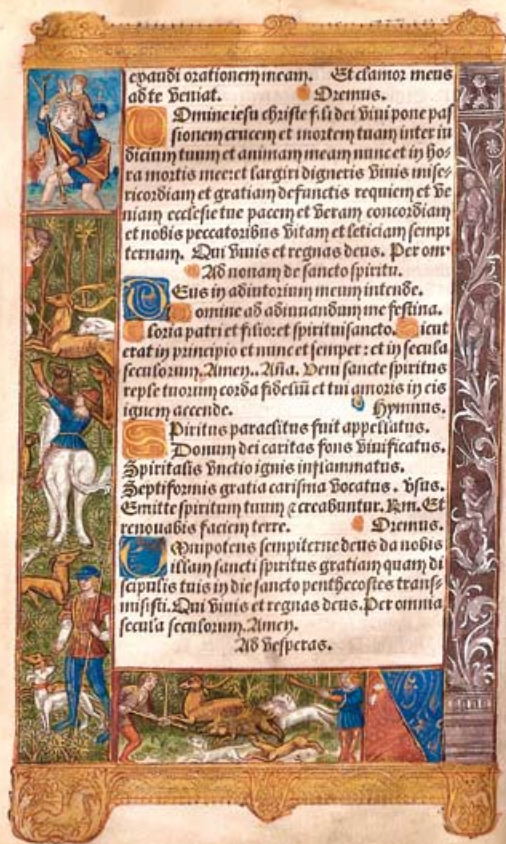 exaudi orationem meam. Et clamor meus
ad te veniat. Oremus.
Domine iesu christe fili dei vivi pone pas
sionem crucem et mortem tuam inter iu
dicium tuum et animam meam nunc et in ho-
ra mortis mee: et largiri digneris vivis mise-
ricordiam et gratiam defunctis requiem et ve
niam ecclesie tue pacem et veram concordiam
et nobis peccatoribus vitam et leticiam sempi
ternam. Qui vivis et regnas deus. Per om-
Ad nonam de sancto spiritu.
Deus in adiutorium meum intende.
Domine ad adiuvandum me festina.
Gloria patri et filio: et spiritui sancto. Sicut
erat in principio et nunc et semper: et in secula
seculorum. Amen. Aña. Veni sancte spiritus
reple tuorum corda fidelium et tui amoris in eis
ignem accende. Hymnus.
Spiritus paraclitus fuit appellatus.
Donum dei caritas fons vivificatus.
Spiritalis unctio ignis inflammatus.
Septiformis gratia carisma vocatus. vsus.
Emitte spiritum tuum & creabuntur. Rm. Et
renovabis faciem terre. Oremus.
Omnipotens sempiterne deus da nobis
illam sancti spiritus gratiam quam di
scipulis tuis in die sancto penthecostes trans-
misisti. Qui vivis et regnas deus. Per omnia
secula seculorum. Amen.
Ad vesperas.